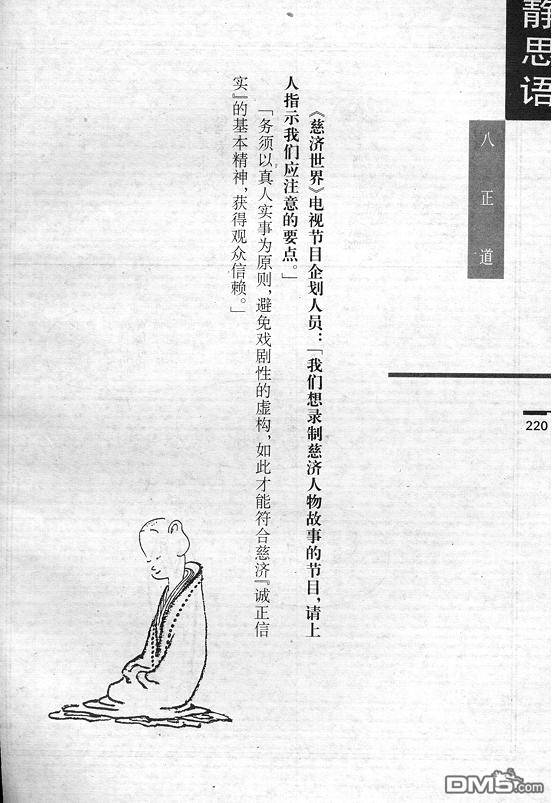 静思语
八正道
220
《慈济世界》电视节目企划人员：「我们想录制慈济人物故事的节目，请上
人指示我们应注意的要点。」
「务须以真人实事为原则，避免戏剧性的虚构，如此才能符合慈济『诚正信
实』的基本精神，获得观众信赖。」
DM5.com